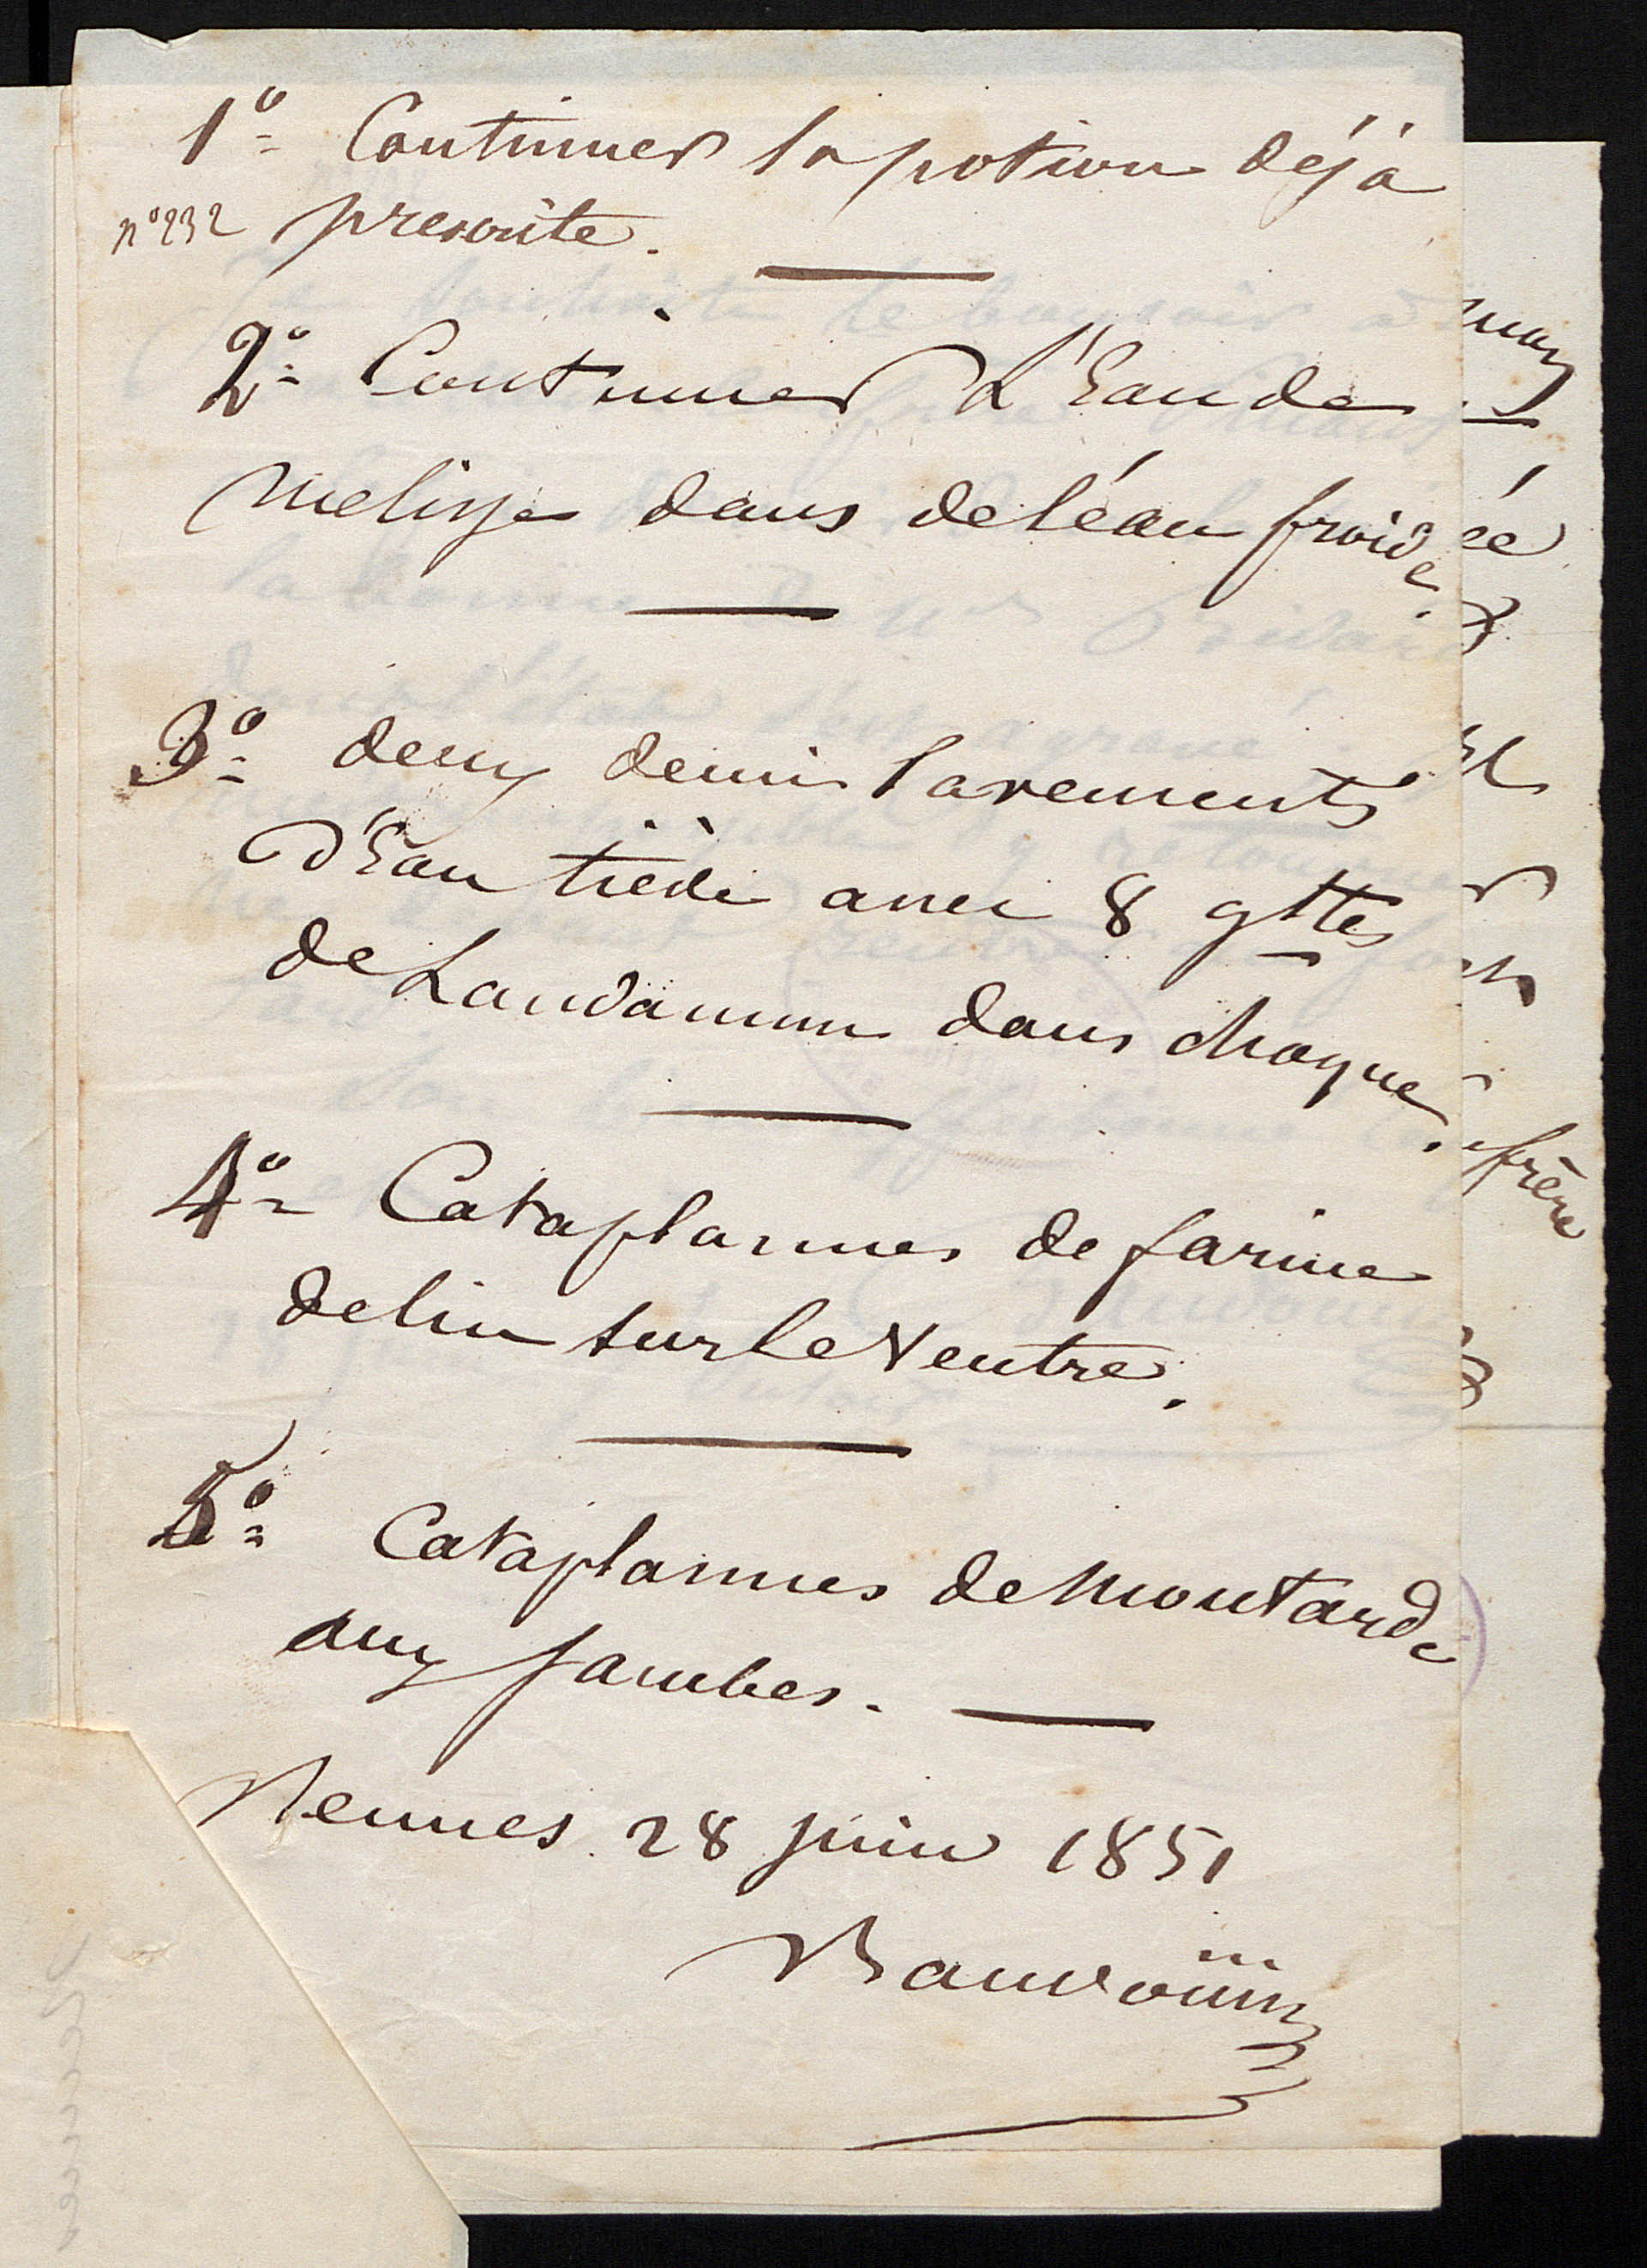 1º Continuer la potion déjà
nº 232 prescrite.
2º Continuer L'Eau de
Melisse dans de léau froide.
3º deux demis lavements
d'Eau tiède avec 8 gttes
de Laudanum dans chaque.
4º Cataplasmes de farine
de lin sur le Ventre.
5º Cataplasmes de Moutarde
aux jambes.
Rennes 28 juin 1851
frère